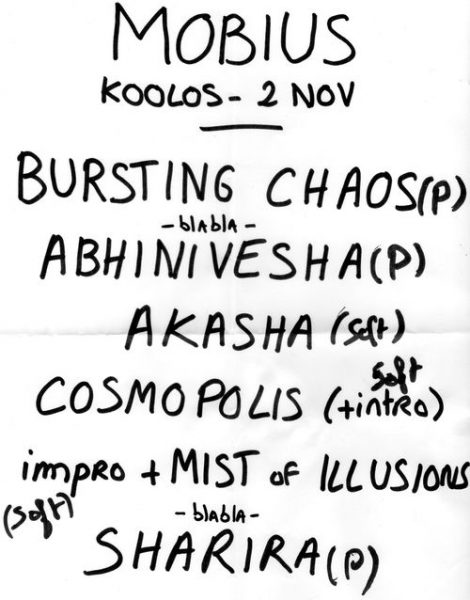 MOBIUS
KOOLOS - 2 NOV
BURSTING CHAOS (P)
- blAblA -
ABHINIVESHA (P)
AKASHA (soft)
soft
COSMOPOLIS (+intro)
impro + MIST of ILLUSIONS
(soft)
- blAblA -
SHARIRA (P)